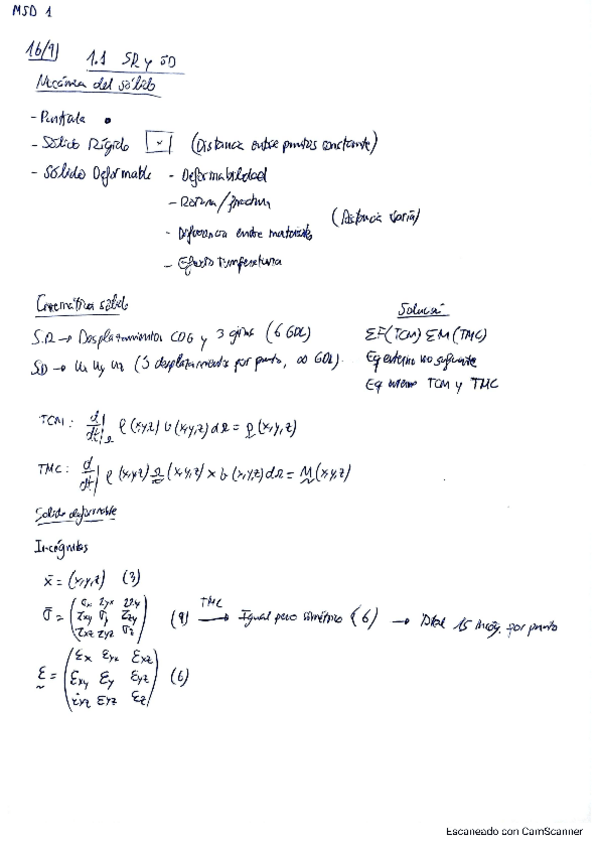 MSD 1
16/9) 1.1 SR y SD
Mecánica del sólido
- Puntual •
- Sólido Rígido (Distancia entre puntos constante)
- Sólido Deformable - Deformabilidad
- Rotura/fractura
(Distancia varía)
- Diferencia entre materiales
- Efecto temperatura
Cinemática sólido
Solución
S.R → Desplazamientos CDG y 3 giros (6 GDL)
ΣF(TCM) ΣM(TMC)
SD → ux uy uz (3 desplazamientos por punto, ∞ GDL).
Eq externo no suficiente
Eq interno TCM y TMC
TCM: d/dt|Ω ρ(x,y,z) v(x,y,z) dΩ = R(x,y,z)
TMC: d/dt| ρ(x,y,z) (x,y,z) × v(x,y,z) dΩ = M(x,y,z)
Solido deformable
Incógnitas
x̄ = (x,y,z) (3)
σ̄ = (9) TMC → Igual pero simétrico (6) → Total 15 incóg. por punto
ε = (εx εyx εxz
εxy εy εyz
εxz εyz εz) (6)
Escaneado con CamScanner